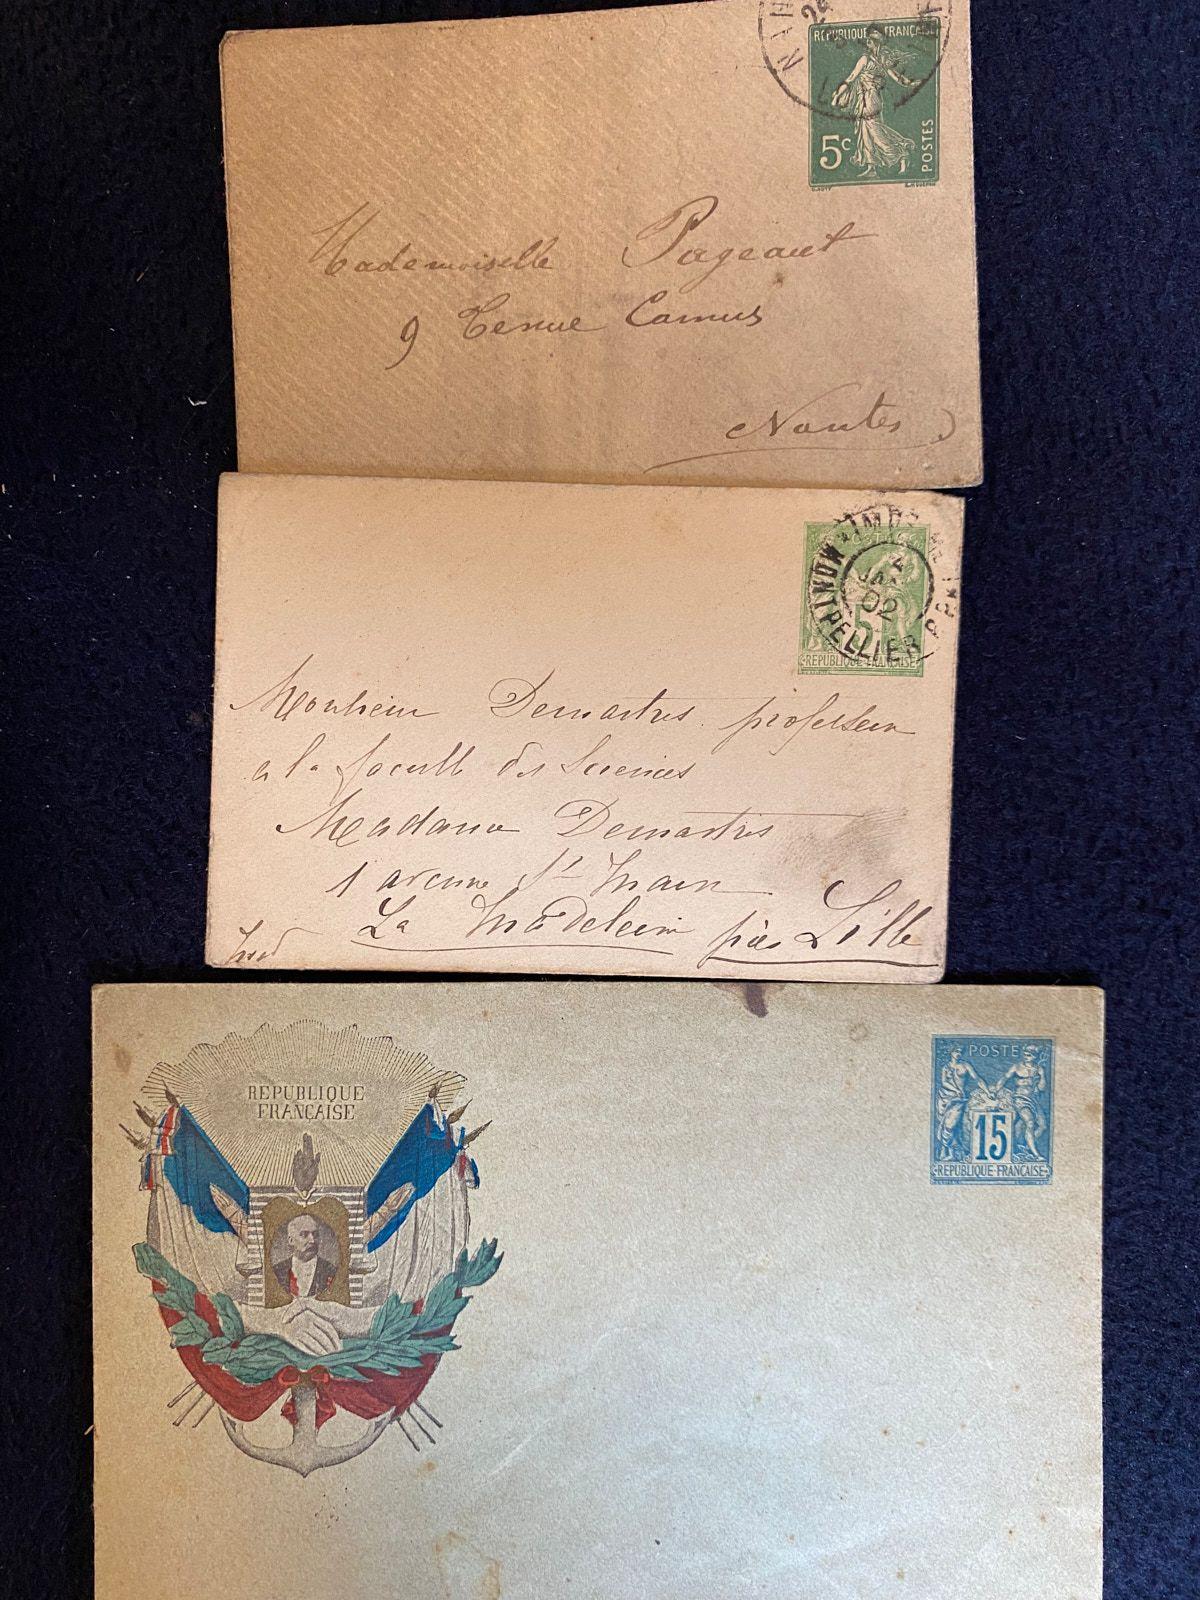 RÉPUBLIQUE FRANÇAISE
5c
POSTES
Mademoiselle Pageaut
9 Tenue Camus
Nantes
MONTPELLIER
JAN
02
5
RÉPUBLIQUE FRANÇAISE
Monsieur Demartres professeur
a la faculté des Sciences
Madame Demartres
1 avenue St Maur
La Madeleine près Lille
Nord
RÉPUBLIQUE
FRANÇAISE
POSTE
15
RÉPUBLIQUE FRANÇAISE